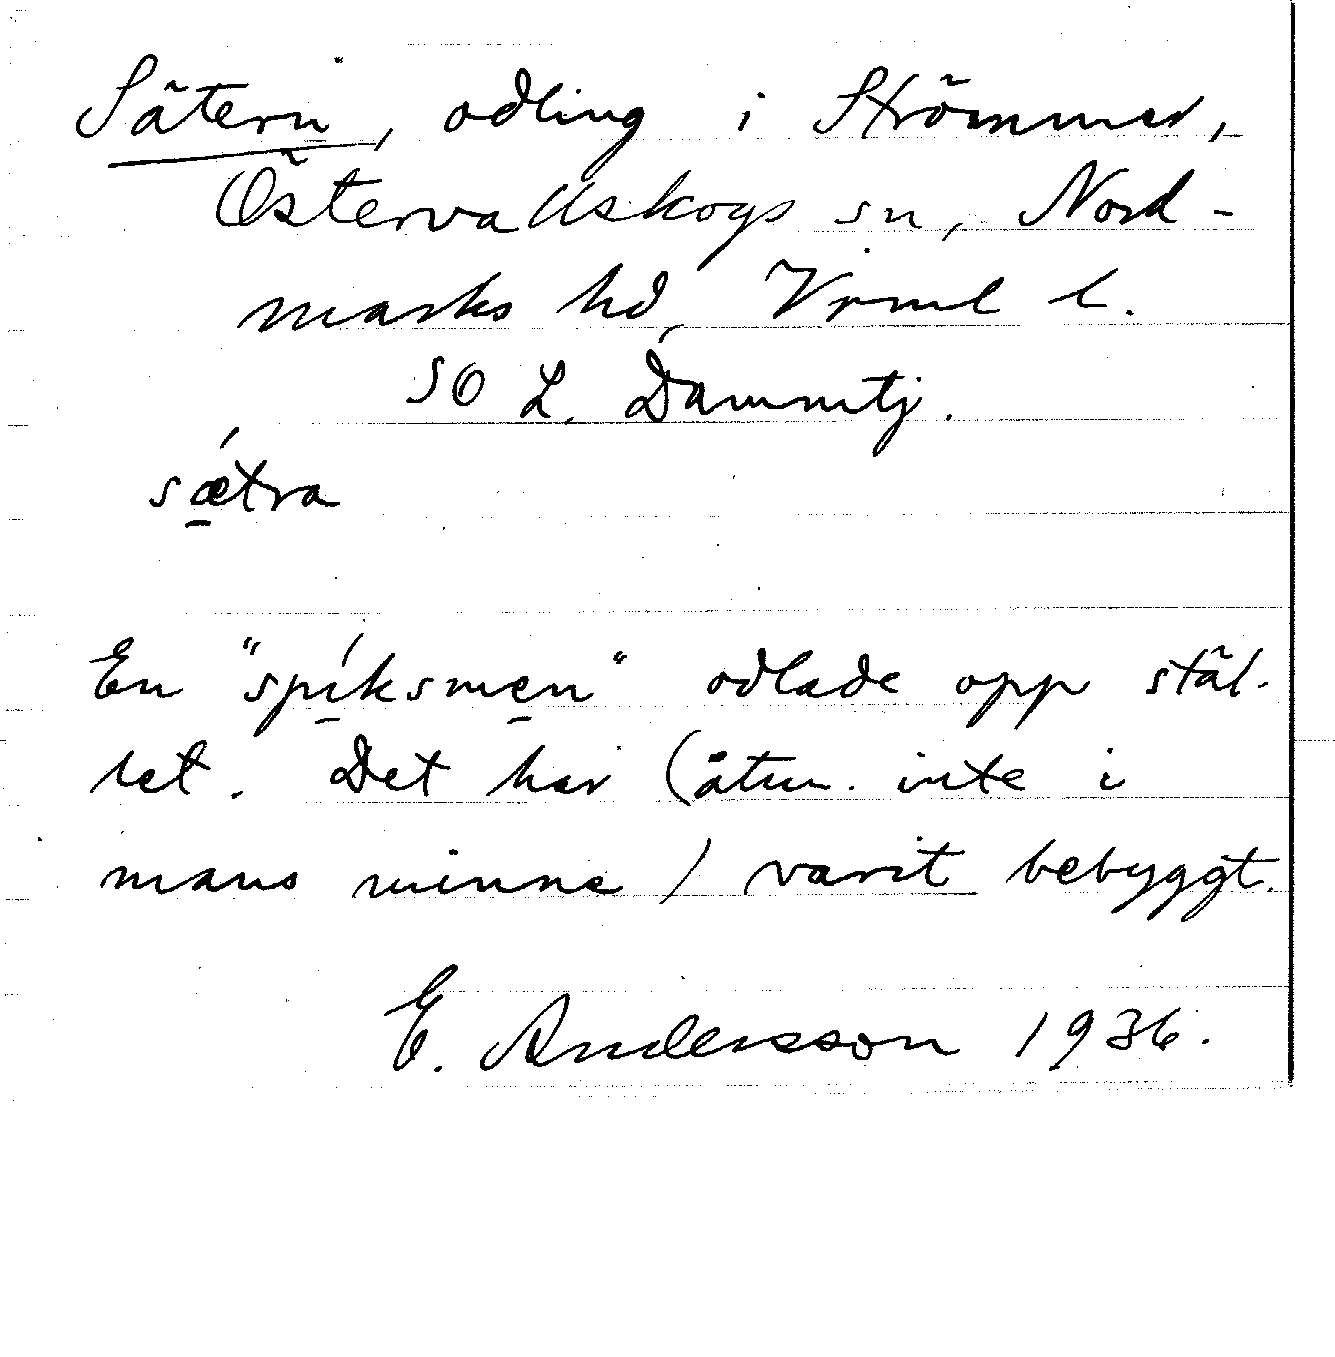 Sätern, odling i Strömmer,
Östervallskogs sn, Nord-
marks hd, Vrml l.
SO L. Dammtj.
sǽtra
En "spíksmen" odlade opp stäl-
let. Det har (åtm. inte i
mans minne) varit bebyggt.
E. Andersson 1936.